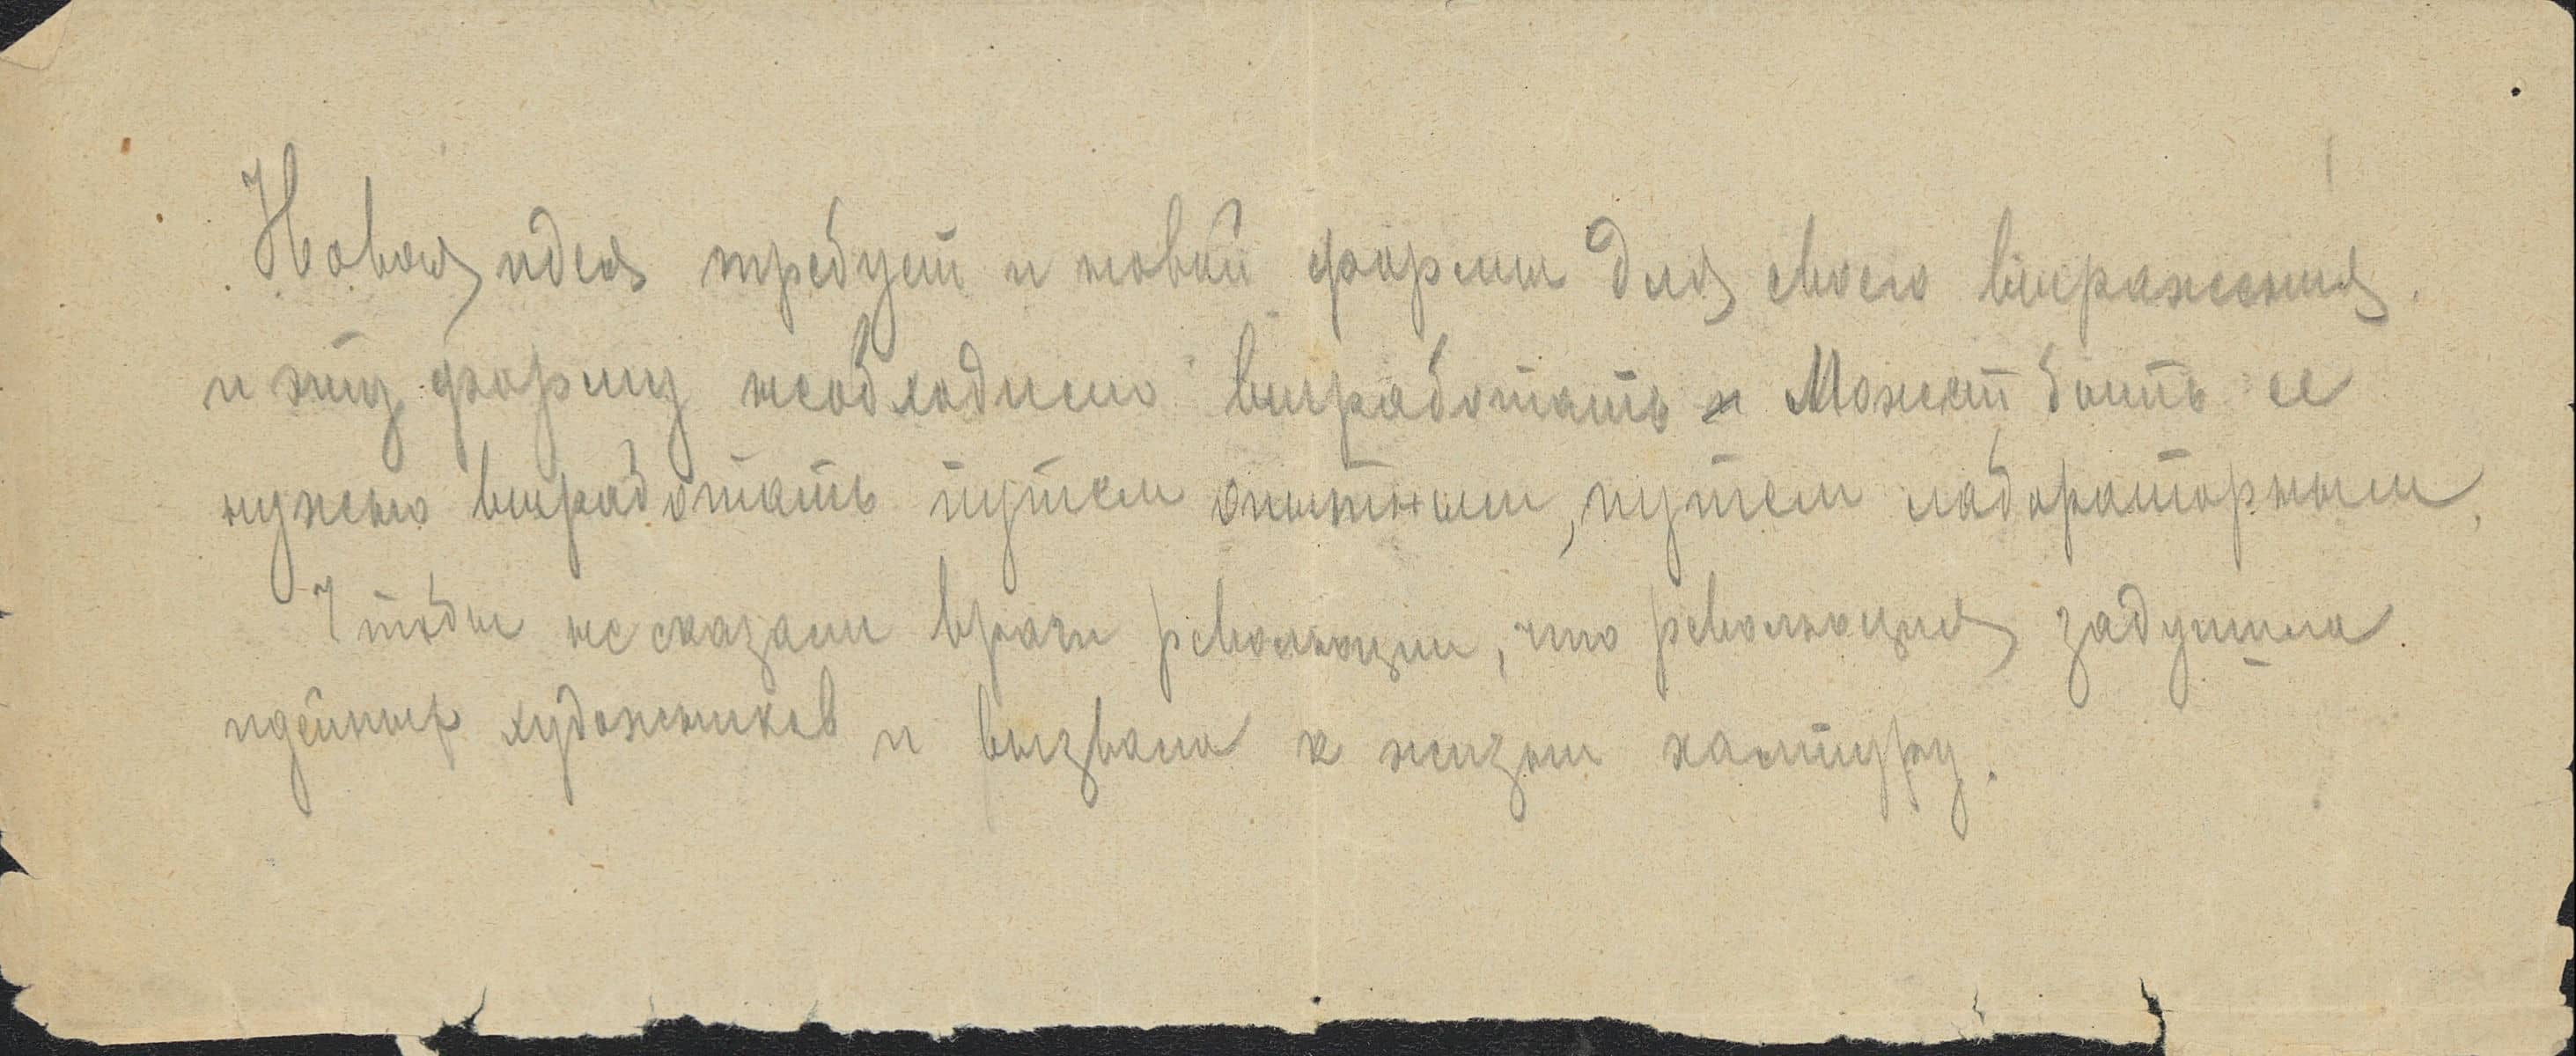 Новая идея требует и новой формы для своего выражения.
и эту форму необходимо выработать Может быть ее
нужно выработать путем опытным, путем лабораторным.
Чтобы не сказали враги революции, что революция задушила
идейных художников и вызвала к жизни халтуру.